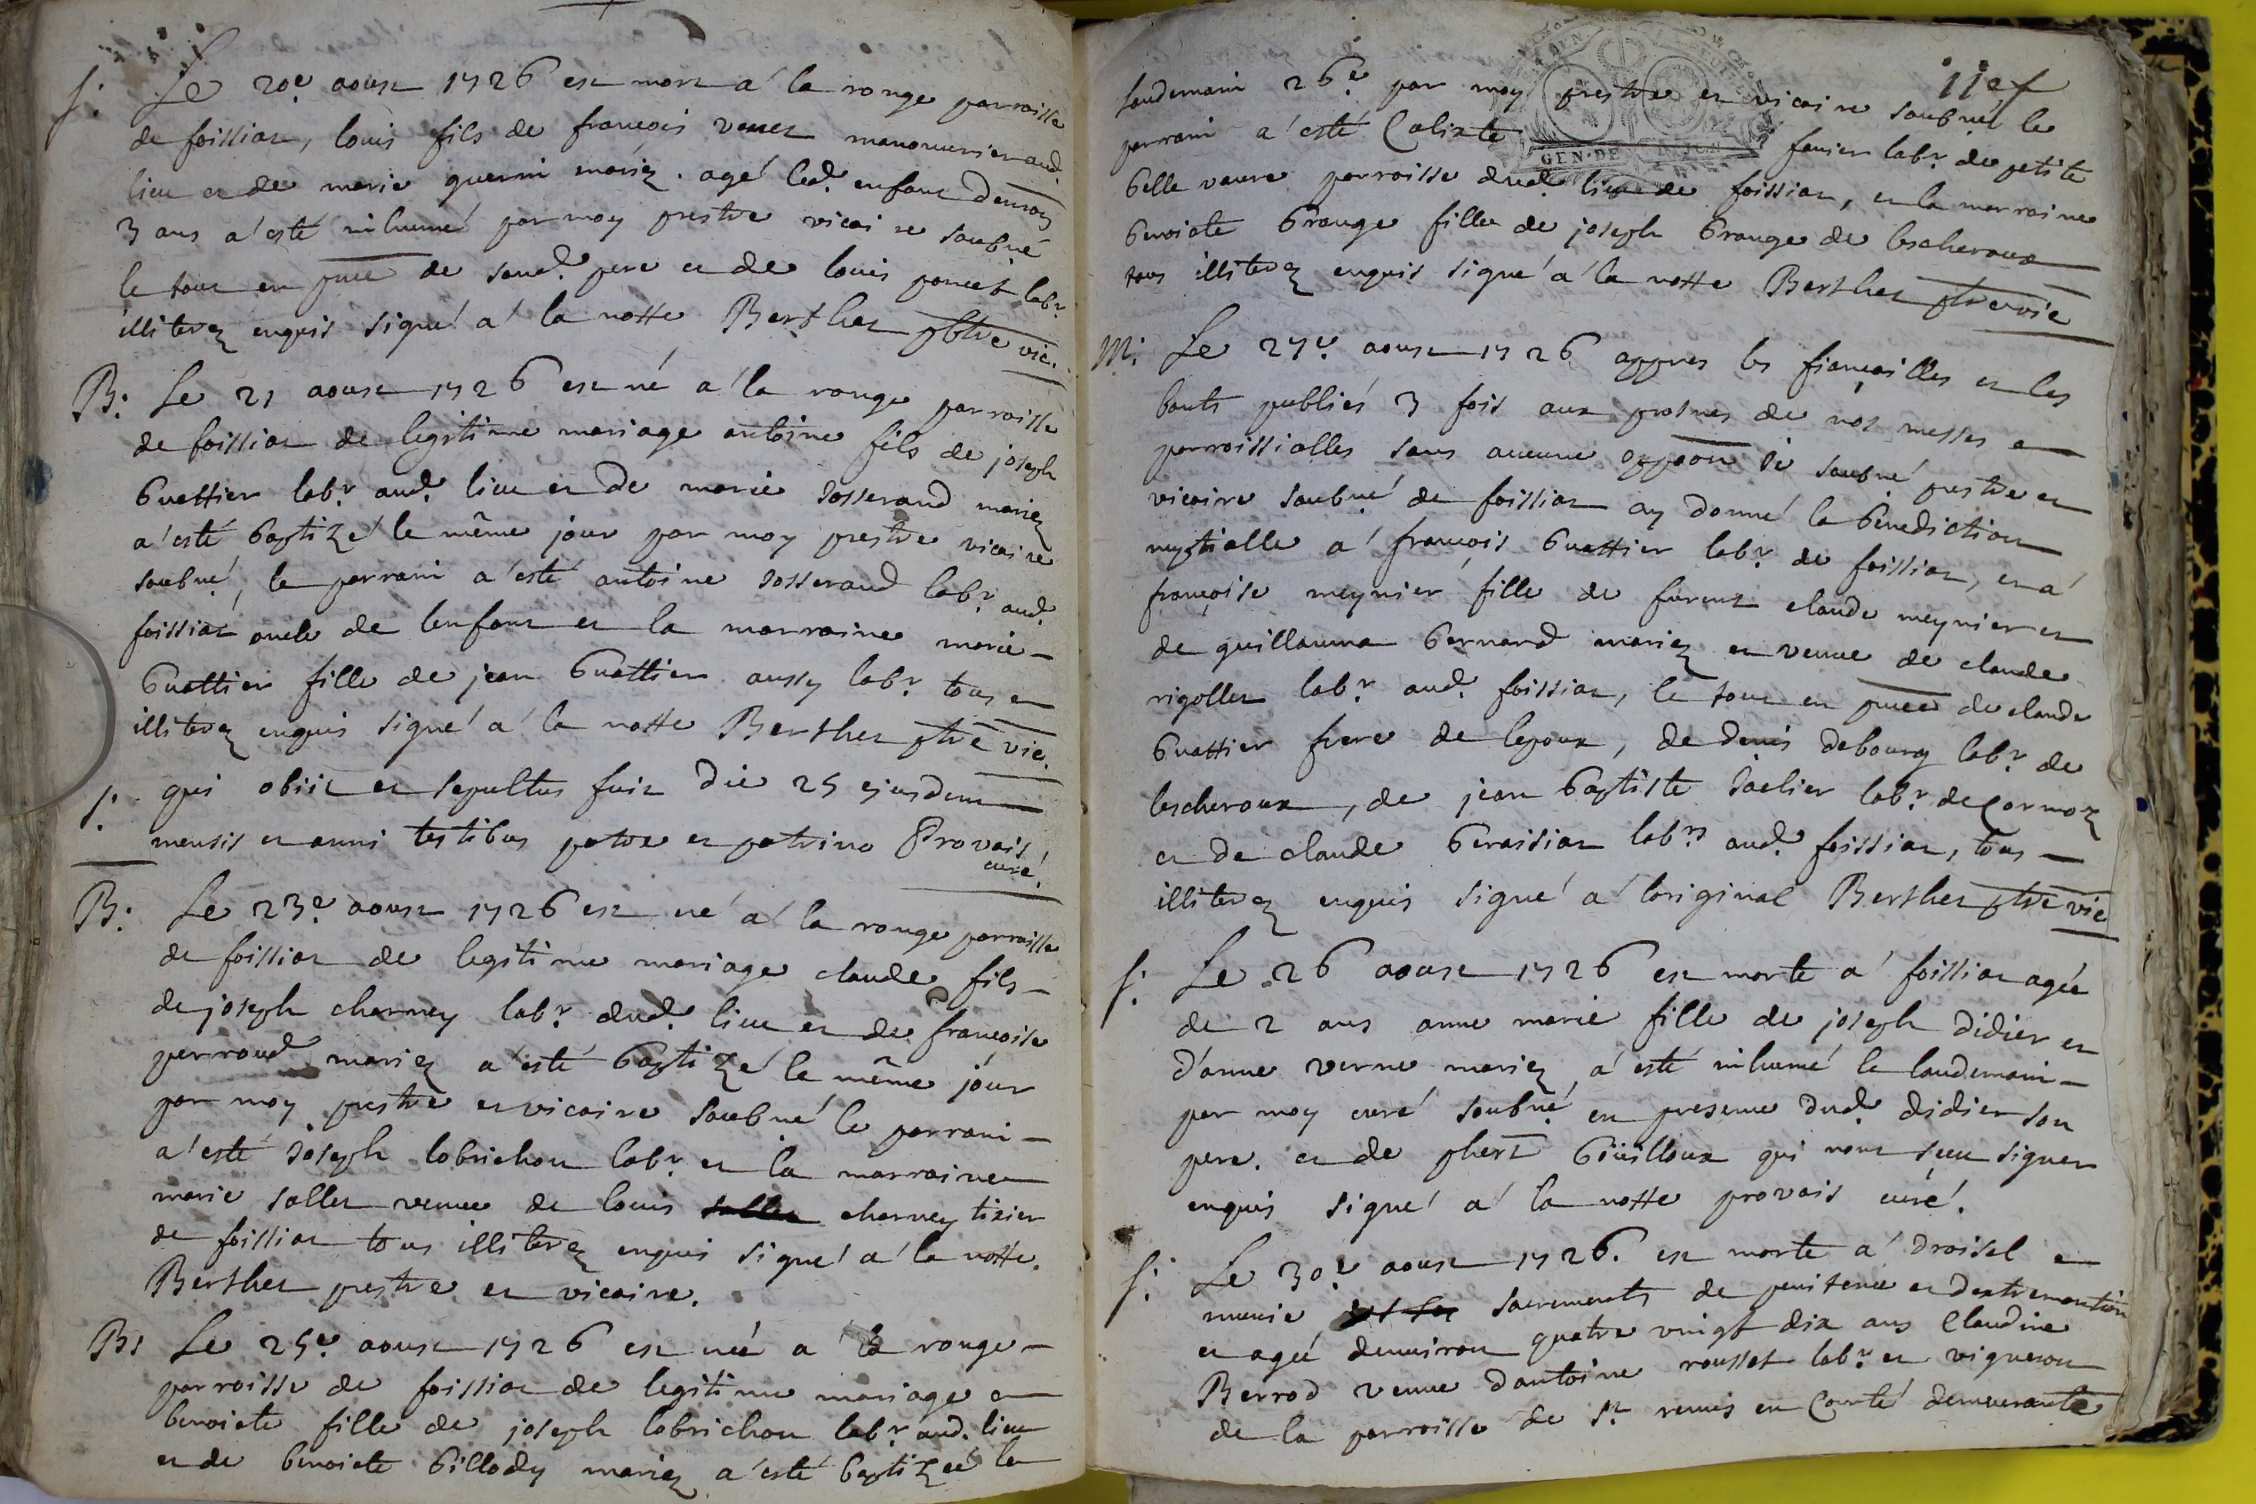 S: Le 20e aoust 1726 est mort a la rouge parroisse
de foissiat, louis fils de francois venet manouvrier aud.
lieu et de marie guerin mariez. agé led. enfant denviron
3 ans a esté inhumé par moy prestre vicaire soubné
le tout en pnce de soud. pere et de louis poncet labr
illiterez enquis signé a la notte Berthet pbtre vic.
B: Le 21 aoust 1726 est né a la rouge parroisse
de foissiat de legitime mariage antoine fils de joseph
buattier labr aud. lieu et de marie josserand mariez
a esté baptizé le même jour par moy prestre vicaire
soubné, le parrain a esté antoine josserand labr aud.
foissiat oncle de lenfant et la marraine marie
buattier fille de jean buattier aussy labr tous
illiterez enquis signé a la notte Berthet ptre vic.
S: qui obiit et sepultus fuit die 25 ejusdem
mensis et anni testibus patre et patrino Provais
curé.
B: Le 23e aoust 1726 est né a la rouge parroisse
de foissiat de legitime mariage claude fils
de joseph charney labr dud. lieu et de francoise
perraud mariez a esté baptizé le même jour
par moy prestre et vicaire soubné le parrain
a esté joseph lobrichon labr et la marraine
marie sallet veuve de louis charney tixier
de foissiat tous illiterez enquis signé a la notte.
Berthet prestre et vicaire.
B: Le 25e aoust 1726 est née a la rouge
parroisse de foissiat de legitime mariage
benoiste fille de joseph lobrichon labr aud. lieu
et de benoiste billody mariez a esté baptizée le
11ef
landemain 26e par moy prestre et vicaire soubné le
parrain a esté Calixte fevrier labr de petite
belle vavre parroisse dud. lieu de foissiat, et la marraine
benoiste brange fille de joseph brange de lescheroux
tous illiterez enquis signé a la notte Berthet ptre vic
GEN. DE
M: Le 27e aoust 1726 appres les fiançailles et les
bants publiés 3 fois aux prosnes de nos messes
parroissialles sans aucune oppõon je soubné prestre et
vicaire soubné de foissiat ay donné la benediction
nuptialle a françois buattier labr de foissiat, et a
françoise meynier fille de furent claude meynier et
de guillauma bernard mariez et veuve de claude
rigollet labr aud. foissiat, le tout en pnce de claude
buattier frere de lepoux, de denis debourg labr de
lescheroux, de jean baptiste joelier labr de Cormoz
et de claude beraisiat labrs aud. foissiat, tous
illiterez enquis signé a loriginal Berthet ptre vic
S: Le 26 aoust 1726 est morte a foissiat agée
de 2 ans anne marie fille de joseph didier et
d'anne verne mariez, a esté inhumé le landemain
par moy curé soubné en presence dud. didier son
pere. et de phert Guilloux qui nont sceu signer
enquis signé a la notte provais curé.
S: Le 30e aoust 1726. est morte a droisel
munie sacrements de penitence et dextremontion
et agée denviron quatre vingt dix ans Claudine
Berrod veuve dantoine rousset labr et vigneron
de la parroisse de St remis en Comté demeurante